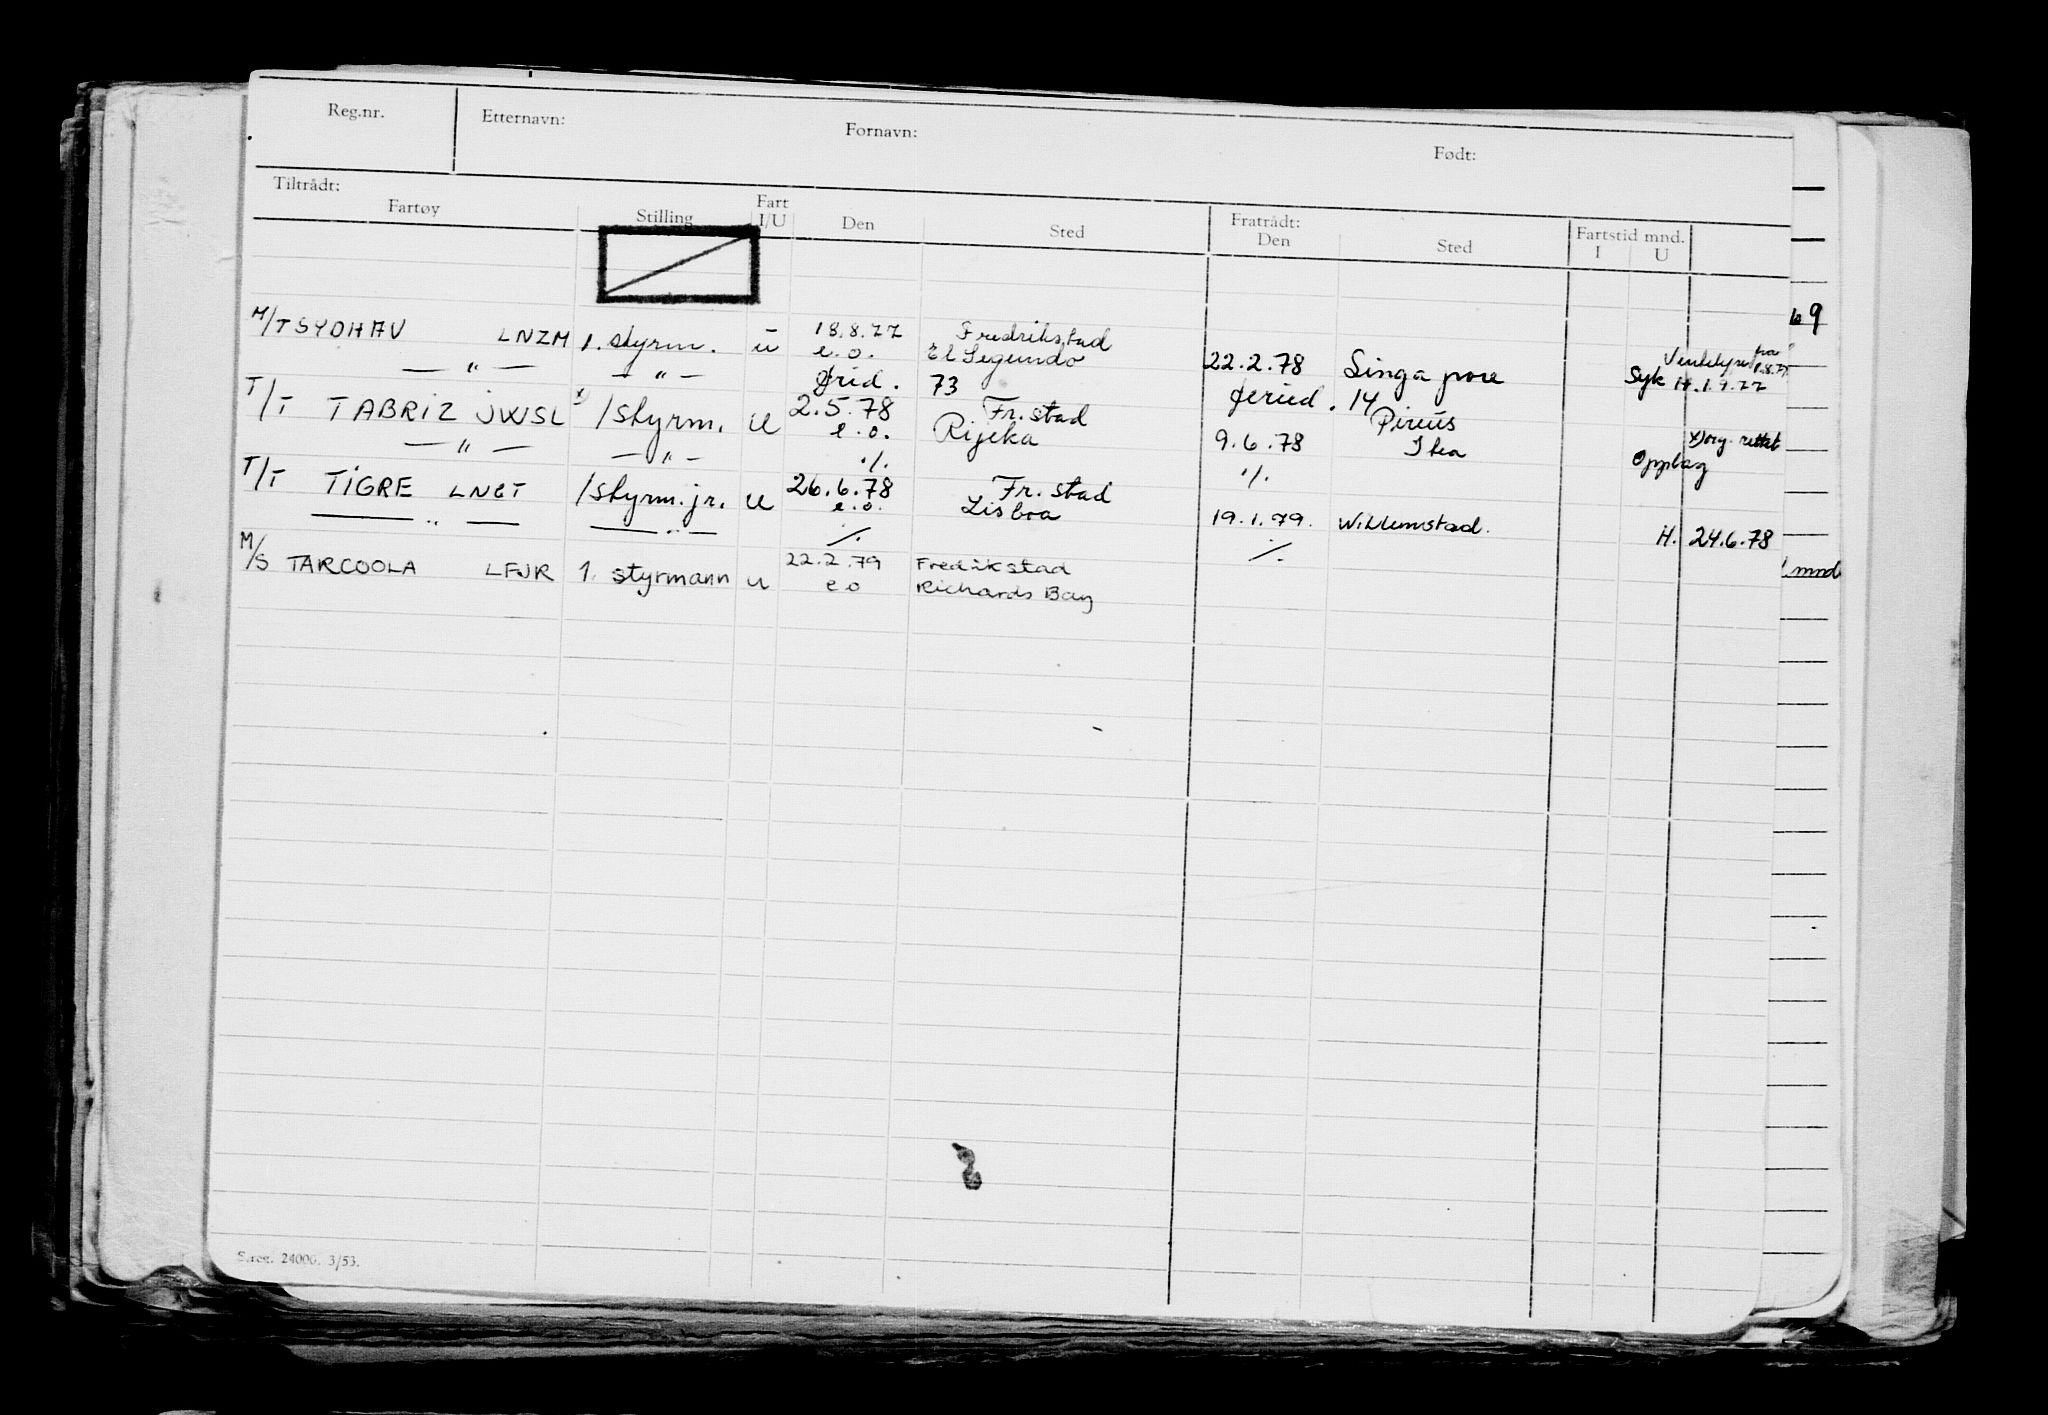 Reg.nr. Etternavn: Fornavn: Født:
Tiltrådt: Fartøy Stilling Fart I/U Den Sted Fratrådt: Den Sted Fartstid mnd. I U
M/T SYDHAV LNZM 1. styrm. u 18.8.77 Fredrikstad
— " — — " — e.o. El Segundo 22.2.78 Singapore Syk H.1.9.77
frid. 73 feried. 14
T/T TABRIZ JWSL x) 1 styrm. u 2.5.78 Fr.stad Pireús
— " — — " — e.o. Rijeka 9.6.78 Itea Opplag x) org. rettet
·/. ·/.
T/T TIGRE LNCT 1 styrm. jr. u 26.6.78 Fr. stad
— " — — " — e.o. Lisboa 19.1.79. Willemstad. H. 24.6.78
·/. ·/.
M/S TARCOOLA LFJR 1. styrmann u 22.2.79 Fredrikstad
e o Richards Bay
mnd
69
S.reg. 24000. 3/53.